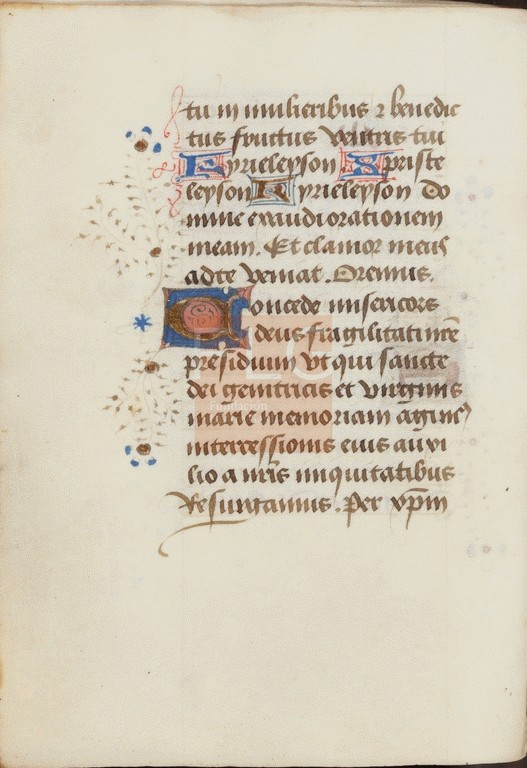 tu in mulieribus ⁊ benedic
tus fructus ventris tui
Kyrieleyson Xpriste
leyson Kyrieleyson Do
mine exaudi orationem
meam. Et clamor meus
ad te veniat. Oremus.
Concede misericors
deus fragilitati nr̄e
presidium vt qui sancte
dei genitricis et virginis
marie memoriam agim⁹
intercessionis eius auxi
lio a nr̄is iniquitatibus
Resurgamus. Per xp̄m